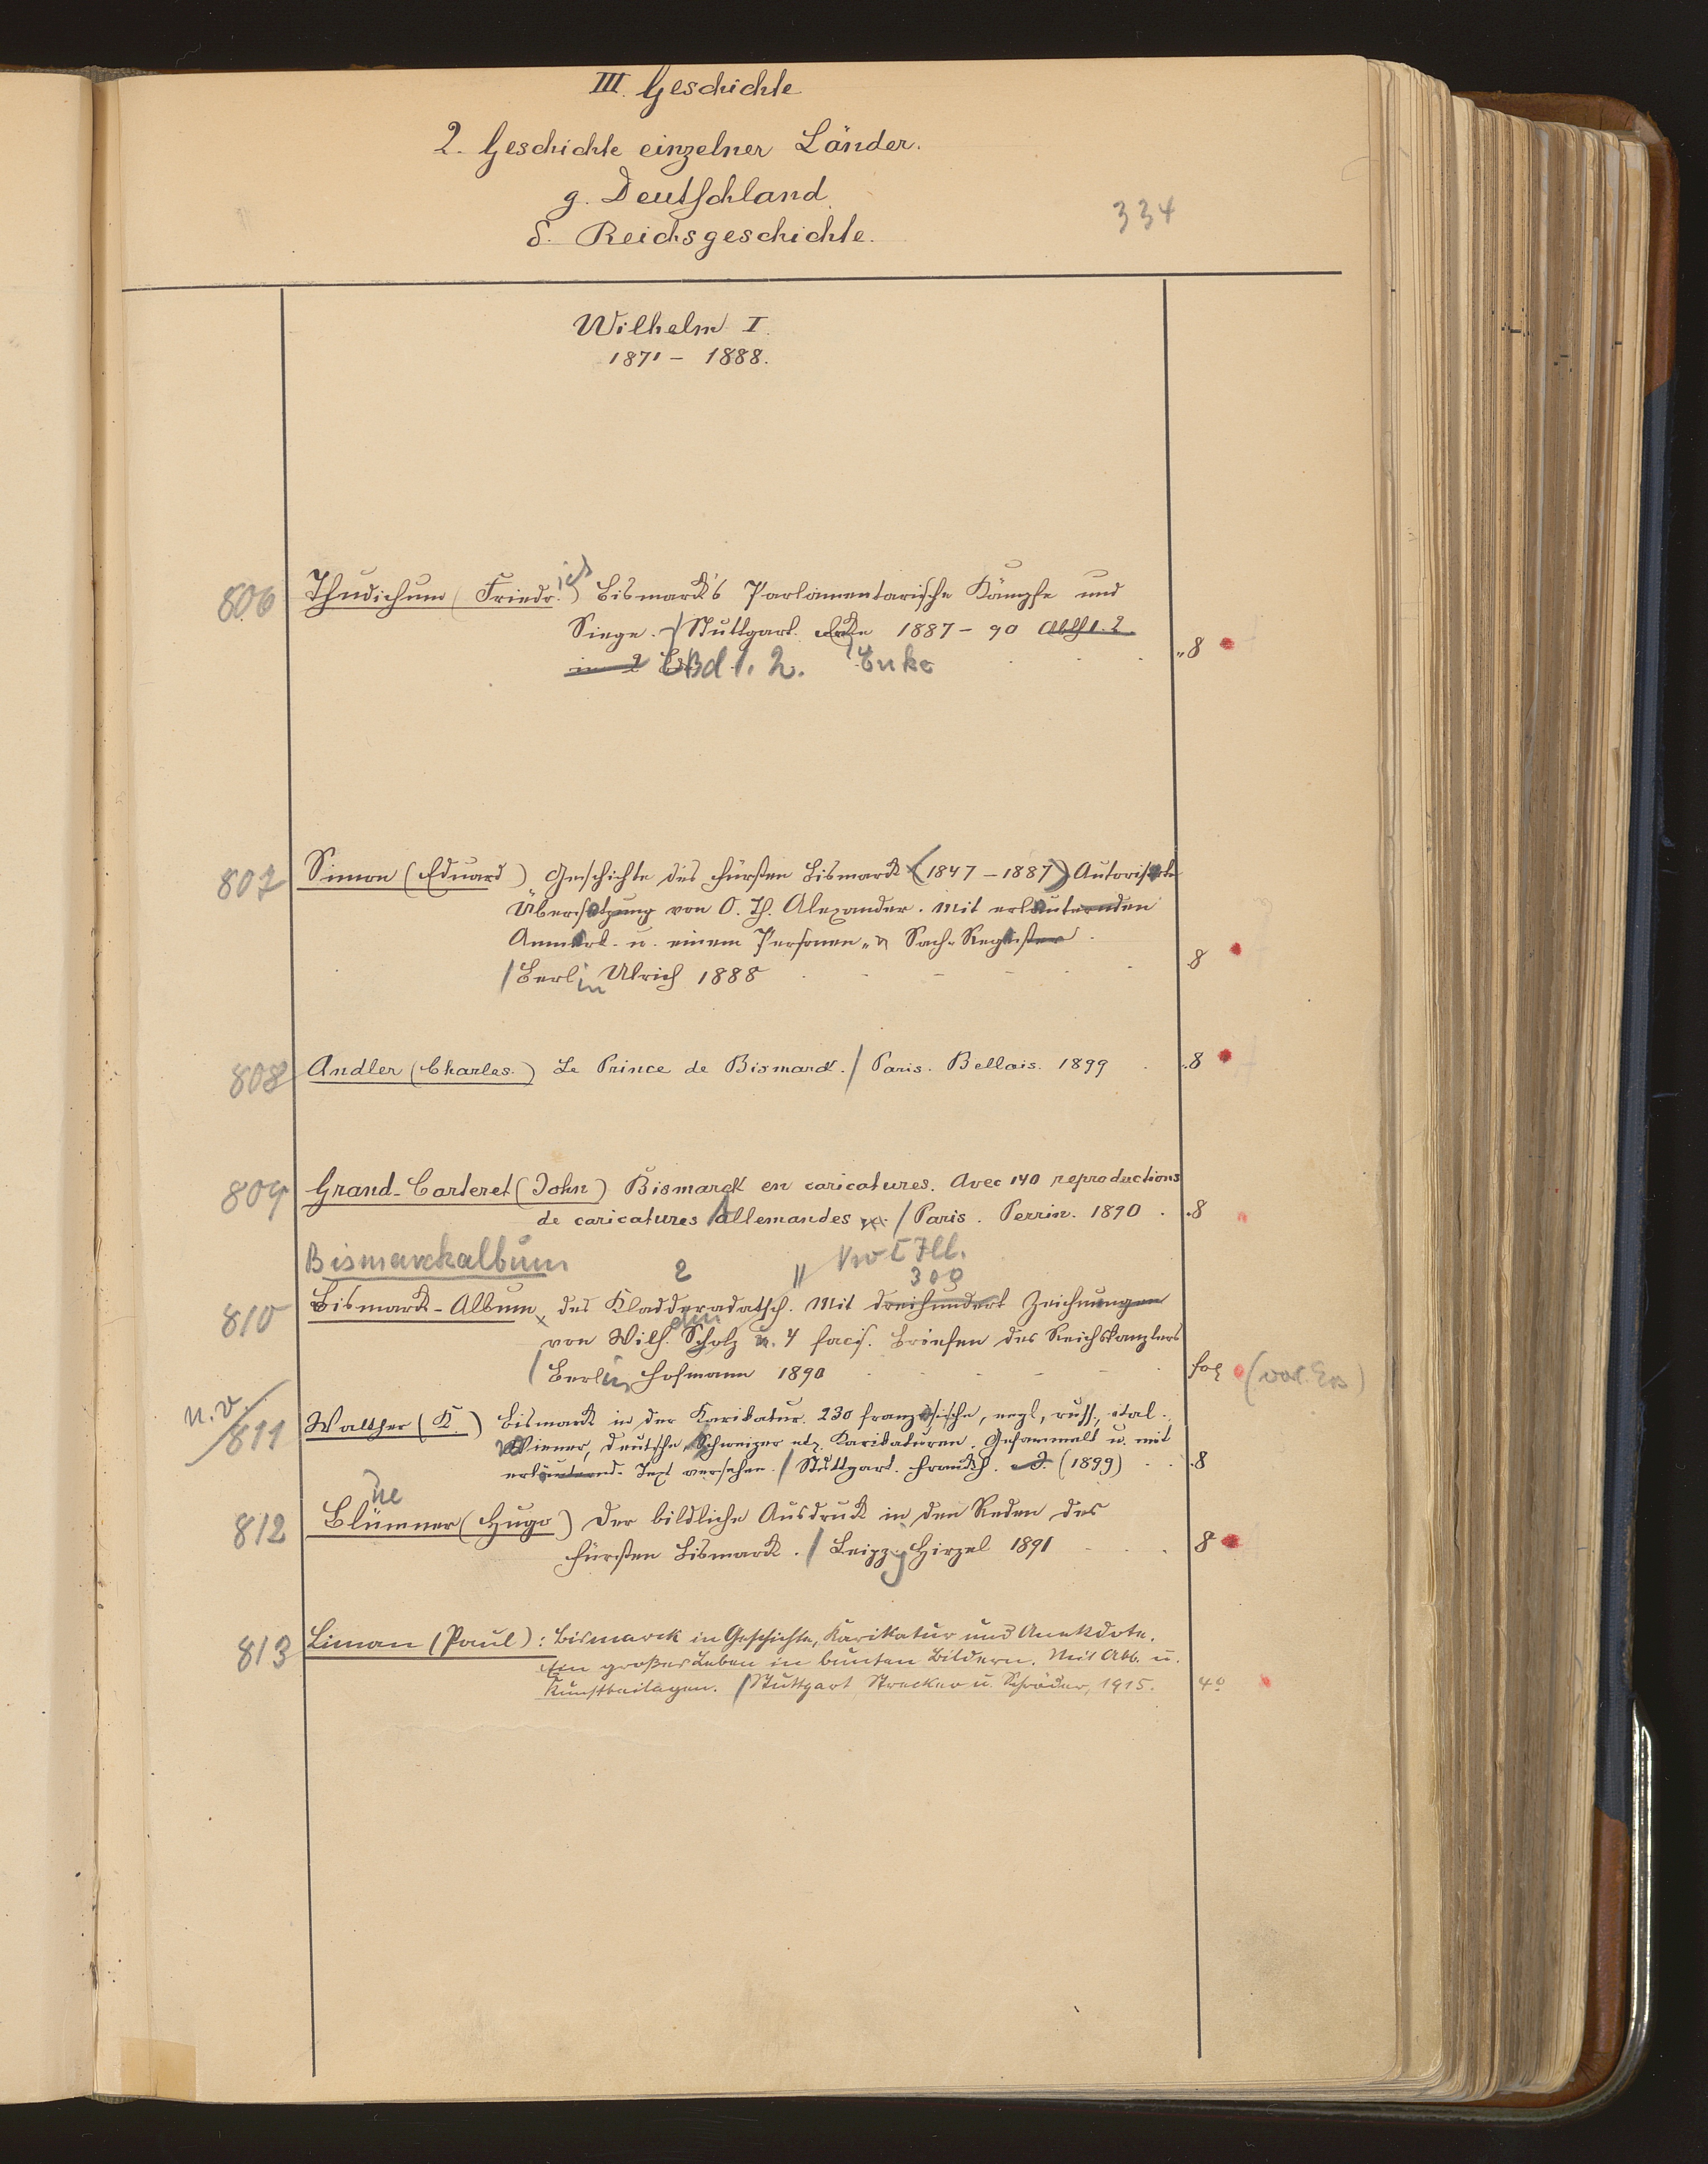 III. Geschichte
2. Geschichte einzelner Länder.
g. Deutschland
δ. Reichsgeschichte.
334
Wilhelm I.
1871 - 1888.
806 Thudichum (Friedr.ich) Bismarck's Parlamentarische Kämpfe und
Siege. / Stuttgart. Enke 1887-90 Abth 1. 2.
in 2 Bd 1. 2. Enke 8
807 Simon (Eduard) Geschichte des Fürsten Bismarck (1847-1887) Autorisirte
Übersetzung von O. Th. Alexander. Mit erläuternden
Anmerk. u. einem Personen- u Sach-Register.
/ Berlin Ulrich 1888 8
808 Andler (Charles.) Le Prince de Bismarck. / Paris. Bellais. 1899 8
809 Grand-Carteret (John) Bismarck en caricatures. Avec 140 reproductions
de caricatures allemandes / Paris. Perrin. 1890. 8
Bismarckalbum 2 " Ill.
300
810 Bismarck-Album des Kladderadatsch. Mit dreihundert Zeichnungen
von Wilh. Scholz u. 4 facs. Briefen des Reichskanzlers
/ Berlin Hofmann 1890 fol
n. v.
811 Walther (K.) Bismarck in der Karikatur. 230 französische, engl, russ., ital.
Wiener, deutsche, Schweizer etz. Karikaturen. Gesammelt u. mit
erläuternd. Text versehen. / Stuttgart. Franckh. o. J. (1899) 8
ue
812 Blümner (Hugo) Der bildliche Ausdruck in den Reden des
Fürsten Bismarck. / Leipzig Hirzel 1891 8
813 Liman (Paul): Bismarck in Geschichte, Karikatur und Anekdote.
Ein großes Leben in bunten Bildern. Mit Abb. u.
Kunstbeilagen. / Stuttgart, Strecker u. Schröder, 1915. 4°